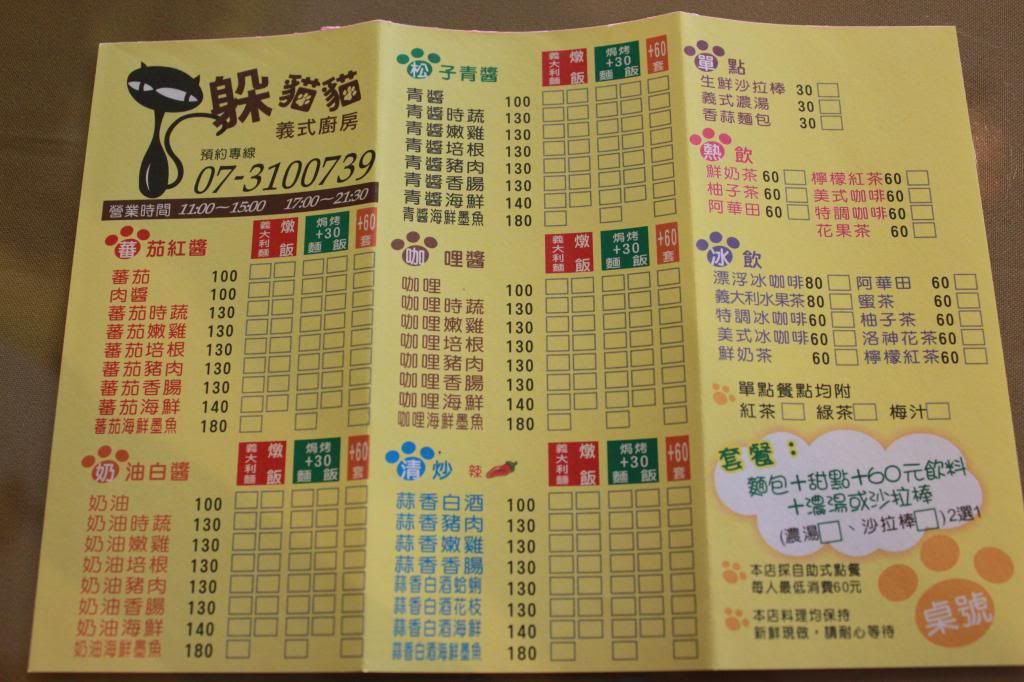 躲貓貓
義式廚房
預約專線
07-3100739
營業時間 11:00～15:00 17:00～21:30
蕃茄紅醬 義大利麵 燉飯 焗烤+30 麵 飯 +60套
蕃茄 100
肉醬 100
蕃茄時蔬 130
蕃茄嫩雞 130
蕃茄培根 130
蕃茄豬肉 130
蕃茄香腸 130
蕃茄海鮮 140
蕃茄海鮮墨魚 180
奶油白醬 義大利麵 燉飯 焗烤+30 麵 飯 +60套
奶油 100
奶油時蔬 130
奶油嫩雞 130
奶油培根 130
奶油豬肉 130
奶油香腸 130
奶油海鮮 140
奶油海鮮墨魚 180
松子青醬 義大利麵 燉飯 焗烤+30 麵 飯 +60套
青醬 100
青醬時蔬 130
青醬嫩雞 130
青醬培根 130
青醬豬肉 130
青醬香腸 130
青醬海鮮 140
青醬海鮮墨魚 180
咖哩醬 義大利麵 燉飯 焗烤+30 麵 飯 +60套
咖哩 100
咖哩時蔬 130
咖哩嫩雞 130
咖哩培根 130
咖哩豬肉 130
咖哩香腸 130
咖哩海鮮 140
咖哩海鮮墨魚 180
清炒 辣 義大利麵 燉飯 焗烤+30 麵 飯 +60套
蒜香白酒 100
蒜香豬肉 130
蒜香嫩雞 130
蒜香香腸 130
蒜香白酒蛤蜊 130
蒜香白酒花枝 130
蒜香白酒海鮮 140
蒜香白酒海鮮墨魚 180
單點
生鮮沙拉棒 30
義式濃湯 30
香蒜麵包 30
熱飲
鮮奶茶 60 檸檬紅茶 60
柚子茶 60 美式咖啡 60
阿華田 60 特調咖啡 60
花果茶 60
冰飲
漂浮冰咖啡 80 阿華田 60
義大利水果茶 80 蜜茶 60
特調冰咖啡 60 柚子茶 60
美式冰咖啡 60 洛神花茶 60
鮮奶茶 60 檸檬紅茶 60
單點餐點均附
紅茶 綠茶 梅汁
套餐：
麵包+甜點+60元飲料
+濃湯或沙拉棒
(濃湯、沙拉棒)2選1
本店採自助式點餐
每人最低消費60元
本店料理均保持
新鮮現做，請耐心等待
桌號